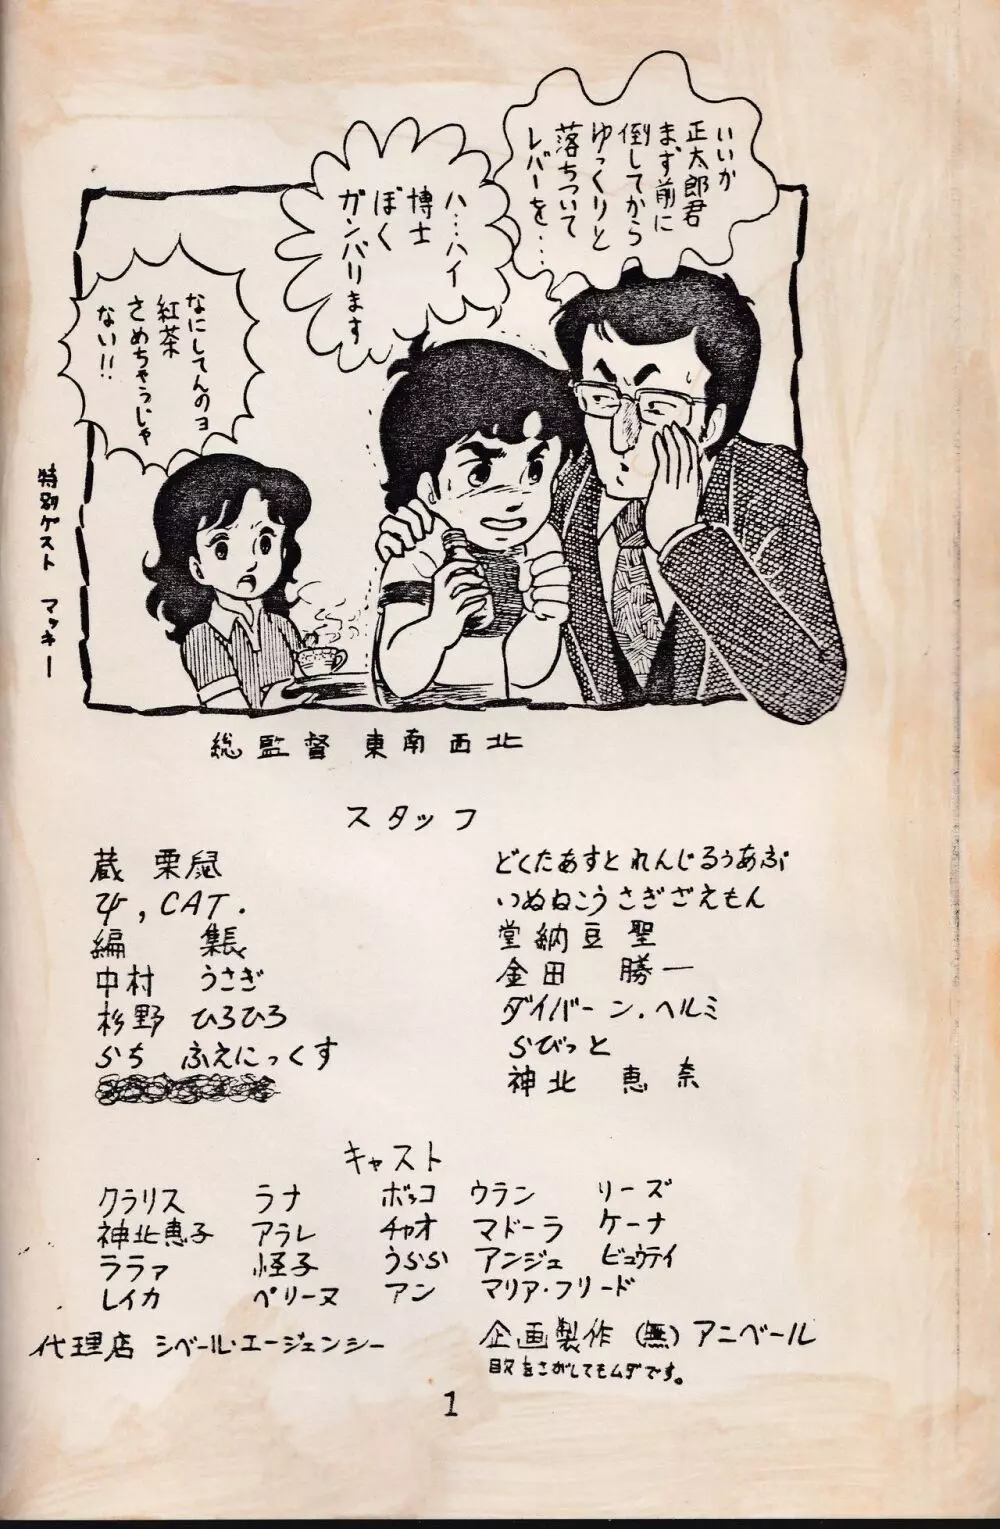 いいか
正太郎君
まず前に
倒してから
ゆっくりと
落ちついて
レバーを・・・
ハ・・・ハイ
博士
ぼく
ガンバリます
なにしてんのョ
紅茶
さめちゃうじゃ
ない!!
特別ゲスト マッキー
総監督 東南西北
スタッフ
蔵 栗鼠
Ψ, CAT.
編 集長
中村 うさぎ
杉野 ひろひろ
らち ふえにっくす
どくたあすとれんじるぅあぶ
いぬねこうさぎざえもん
堂納豆聖
金田 勝一
ダイバーン.ヘルミ
らびっと
神北 恵奈
キャスト
クラリス ラナ ボッコ ウラン リーズ
神北恵子 アラレ チャオ マドーラ ケーナ
ララァ 怪子 うらら アンジェ ビュウティ
レイカ ペリーヌ アン マリア・フリード
代理店 シベール・エージェンシー
企画製作 (無)アニベール
をさがしてもムダです。
1